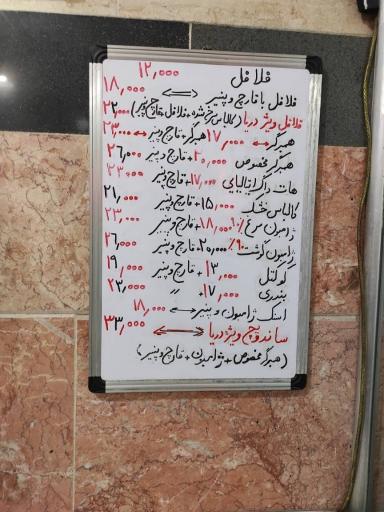 فلافل ۱۲,۰۰۰
فلافل با قارچ و پنیر ۱۸,۰۰۰
فلافل ویژه دریا (کالباس سرخ شده + فلافل + قارچ پنیر) ۲۲,۰۰۰
همبرگر ۱۷,۰۰۰ همبرگر + قارچ پنیر ۲۳,۰۰۰
همبرگر مخصوص ۲۰,۰۰۰ + قارچ و پنیر ۲۶,۰۰۰
هات داگ ایتالیایی ۱۷,۰۰۰ + قارچ پنیر ۲۳,۰۰۰
کالباس خشک ۱۵,۰۰۰ + قارچ و پنیر ۲۱,۰۰۰
ژامبون مرغ ۹۰٪ ۱۸,۰۰۰ + قارچ و پنیر ۲۳,۰۰۰
ژامبون گوشت ۹۰٪ ۲۰,۰۰۰ + قارچ و پنیر ۲۶,۰۰۰
کوکتل ۱۳,۰۰۰ + قارچ و پنیر ۱۹,۰۰۰
بندری ۱۷,۰۰۰ + " ۲۳,۰۰۰
اسنک ژامبون و پنیر ۱۸,۰۰۰
ساندویچ ویژه دریا ۳۳,۰۰۰
(همبرگر مخصوص + ژامبون + قارچ و پنیر)